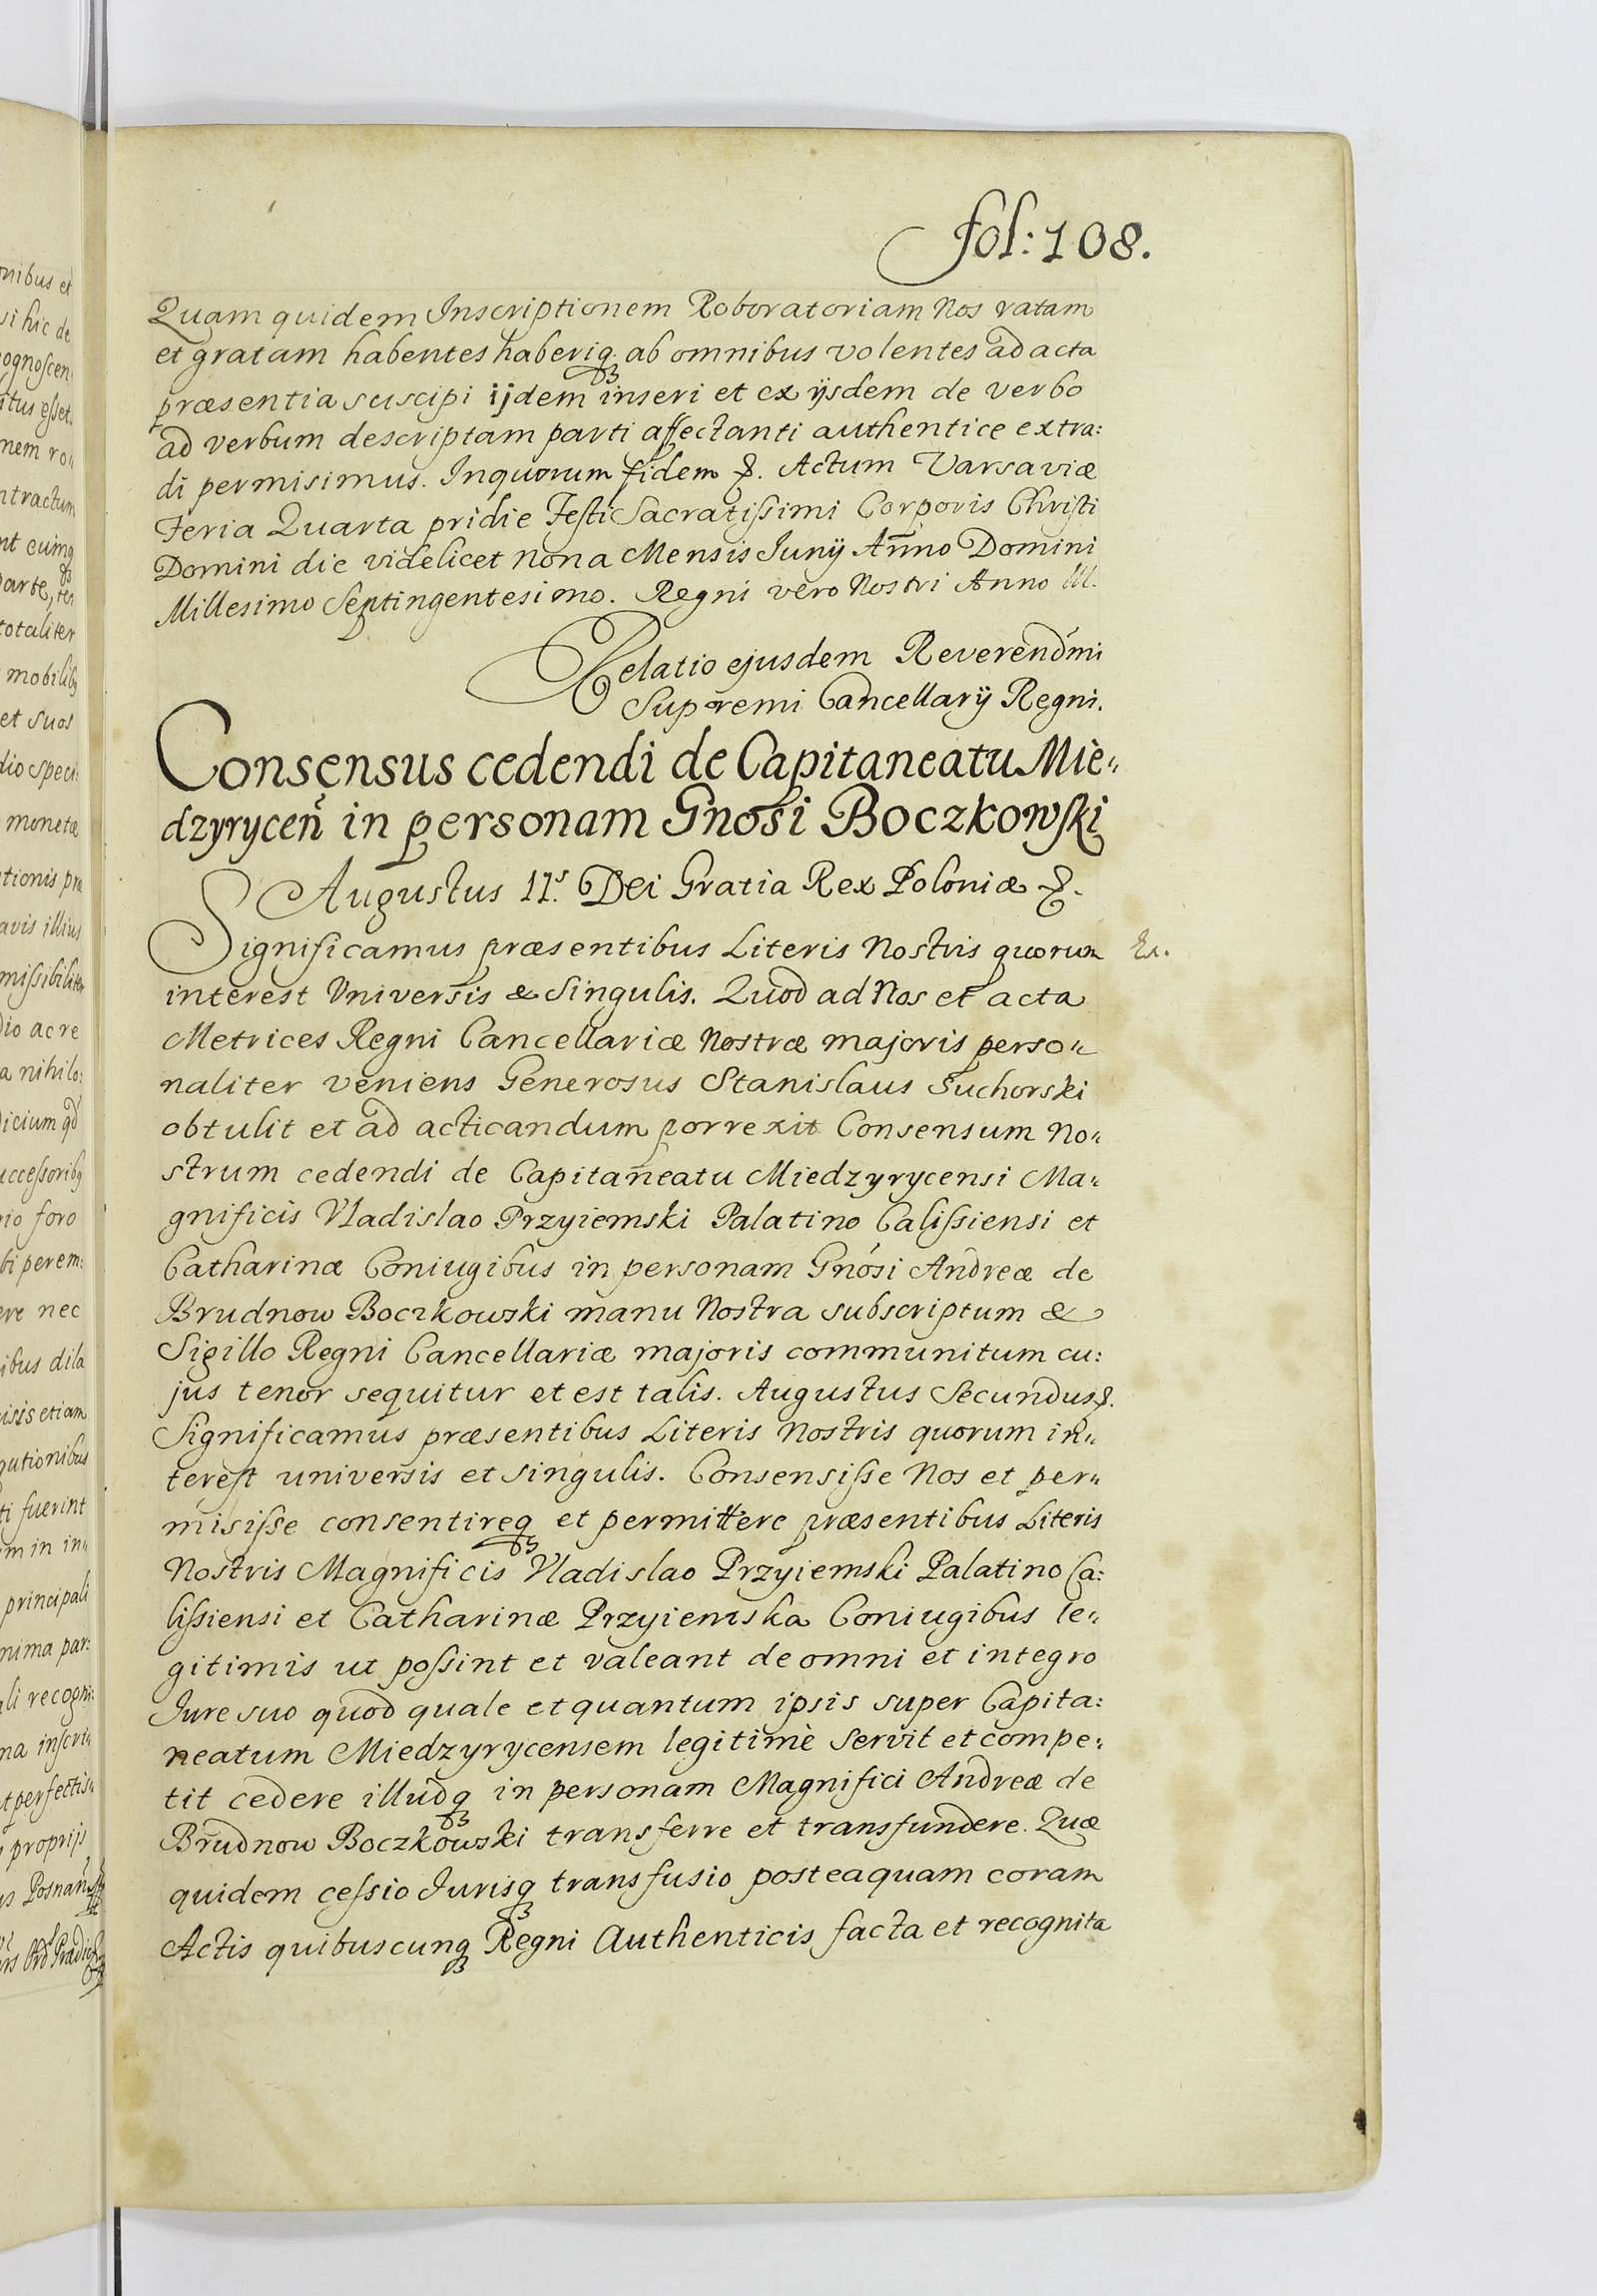 fol: 108.
Quam quidem Inscriptionem Roboratoriam Nos ratam
et gratam habentes haberiq₃ ab omnibus volentes ad acta
præsentia suscipi ijdem inseri et ex ijsdem de verbo
ad verbum descriptam parti affectanti authentice extra:
di permisimus. In quorum fidem &. Actum Varsaviæ
Feria Quarta pridie Festi Sacratissimi Corporis Christi
Domini die videlicet nona Mensis Junij Anno Domini
Millesimo Septingentesimo. Regni vero Nostri Anno III.
Relatio ejusdem Reverendmi
Supremi Cancellarij Regni.
Consensus cedendi de Capitaneatu Mie„
dzyryceñ in personam Gnosi Boczkowski
Augustus II.s Dei Gratia Rex Poloniæ &.
Significamus præsentibus Literis Nostris quorum
interest Vniversis & Singulis. Quod ad Nos et acta
Metrices Regni Cancellariæ Nostræ majoris perso„
naliter veniens Generosus Stanislaus Suchorski
obtulit et ad acticandum porrexit Consensum No„
strum cedendi de Capitaneatu Miedzyrycensi Ma„
gnificis Vladislao Przyiemski Palatino Calissiensi et
Catharinæ Coniugibus in personam Gnosi Andreæ de
Brudnow Boczkowski manu Nostra subscriptum &
Sigillo Regni Cancellariæ majoris communitum cu:
jus tenor sequitur et est talis. Augustus Secundus &.
Significamus præsentibus Literis Nostris quorum in„
terest universis et singulis. Consensisse Nos et per„
misisse consentireq₃ et permittere præsentibus Literis
Nostris Magnificis Vladislao Przyiemski Palatino Ca:
lissiensi et Catharinæ Przyiemska Coniugibus le„
gitimis ut possint et valeant de omni et integro
Jure suo quod quale et quantum ipsis super Capita:
neatum Miedzyrycensem legitimè servit et compe„
tit cedere illudq₃ in personam Magnifici Andreæ de
Brudnow Boczkowski transferre et transfundere. Quæ
quidem cessio Jurisq₃ transfusio posteaquam coram
Actis quibuscunq₃ Regni Authenticis facta et recognita